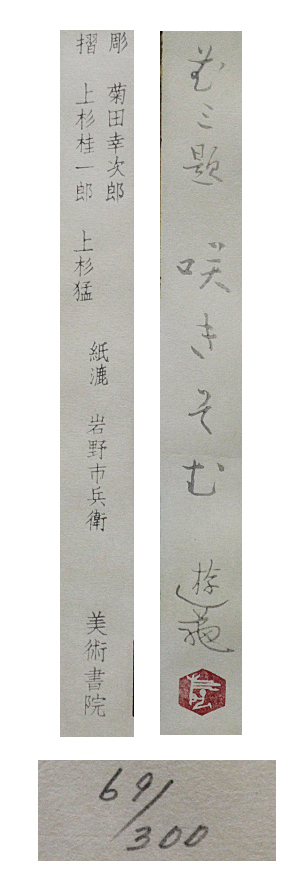 花三題 咲きそむ 遊亀
彫 菊田幸次郎
摺 上杉桂一郎 上杉猛
紙漉 岩野市兵衛
美術書院
69/300